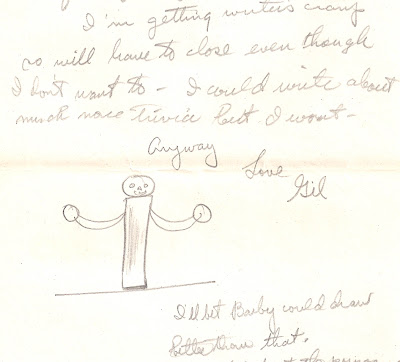 I'm getting writers cramp
so will have to close even though
I don't want to - I could write about
much more trivia but I won't -
Anyway
Love
Gil
I'll bet Barby could draw
better than that.